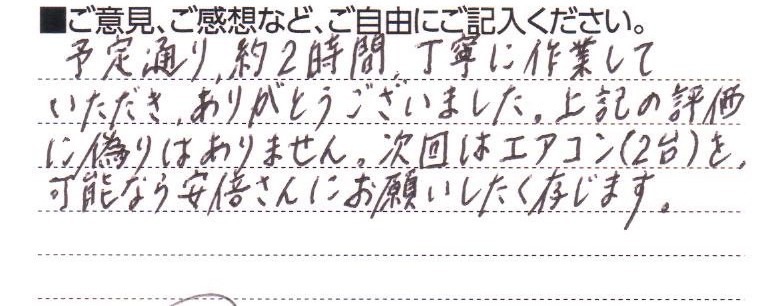 ■ご意見、ご感想など、ご自由にご記入ください。
予定通り、約2時間、丁寧に作業して
いただき、ありがとうございました。上記の評価
に偽りはありません。次回はエアコン(2台)を、
可能なら安倍さんにお願いしたく存じます。